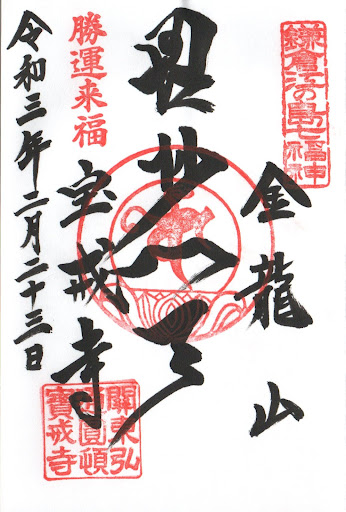 鎌倉江の島七福神
金龍山
毘沙門天
勝運来福
宝戒寺
令和三年二月二十三日
關東弘
圓頓
寶戒寺